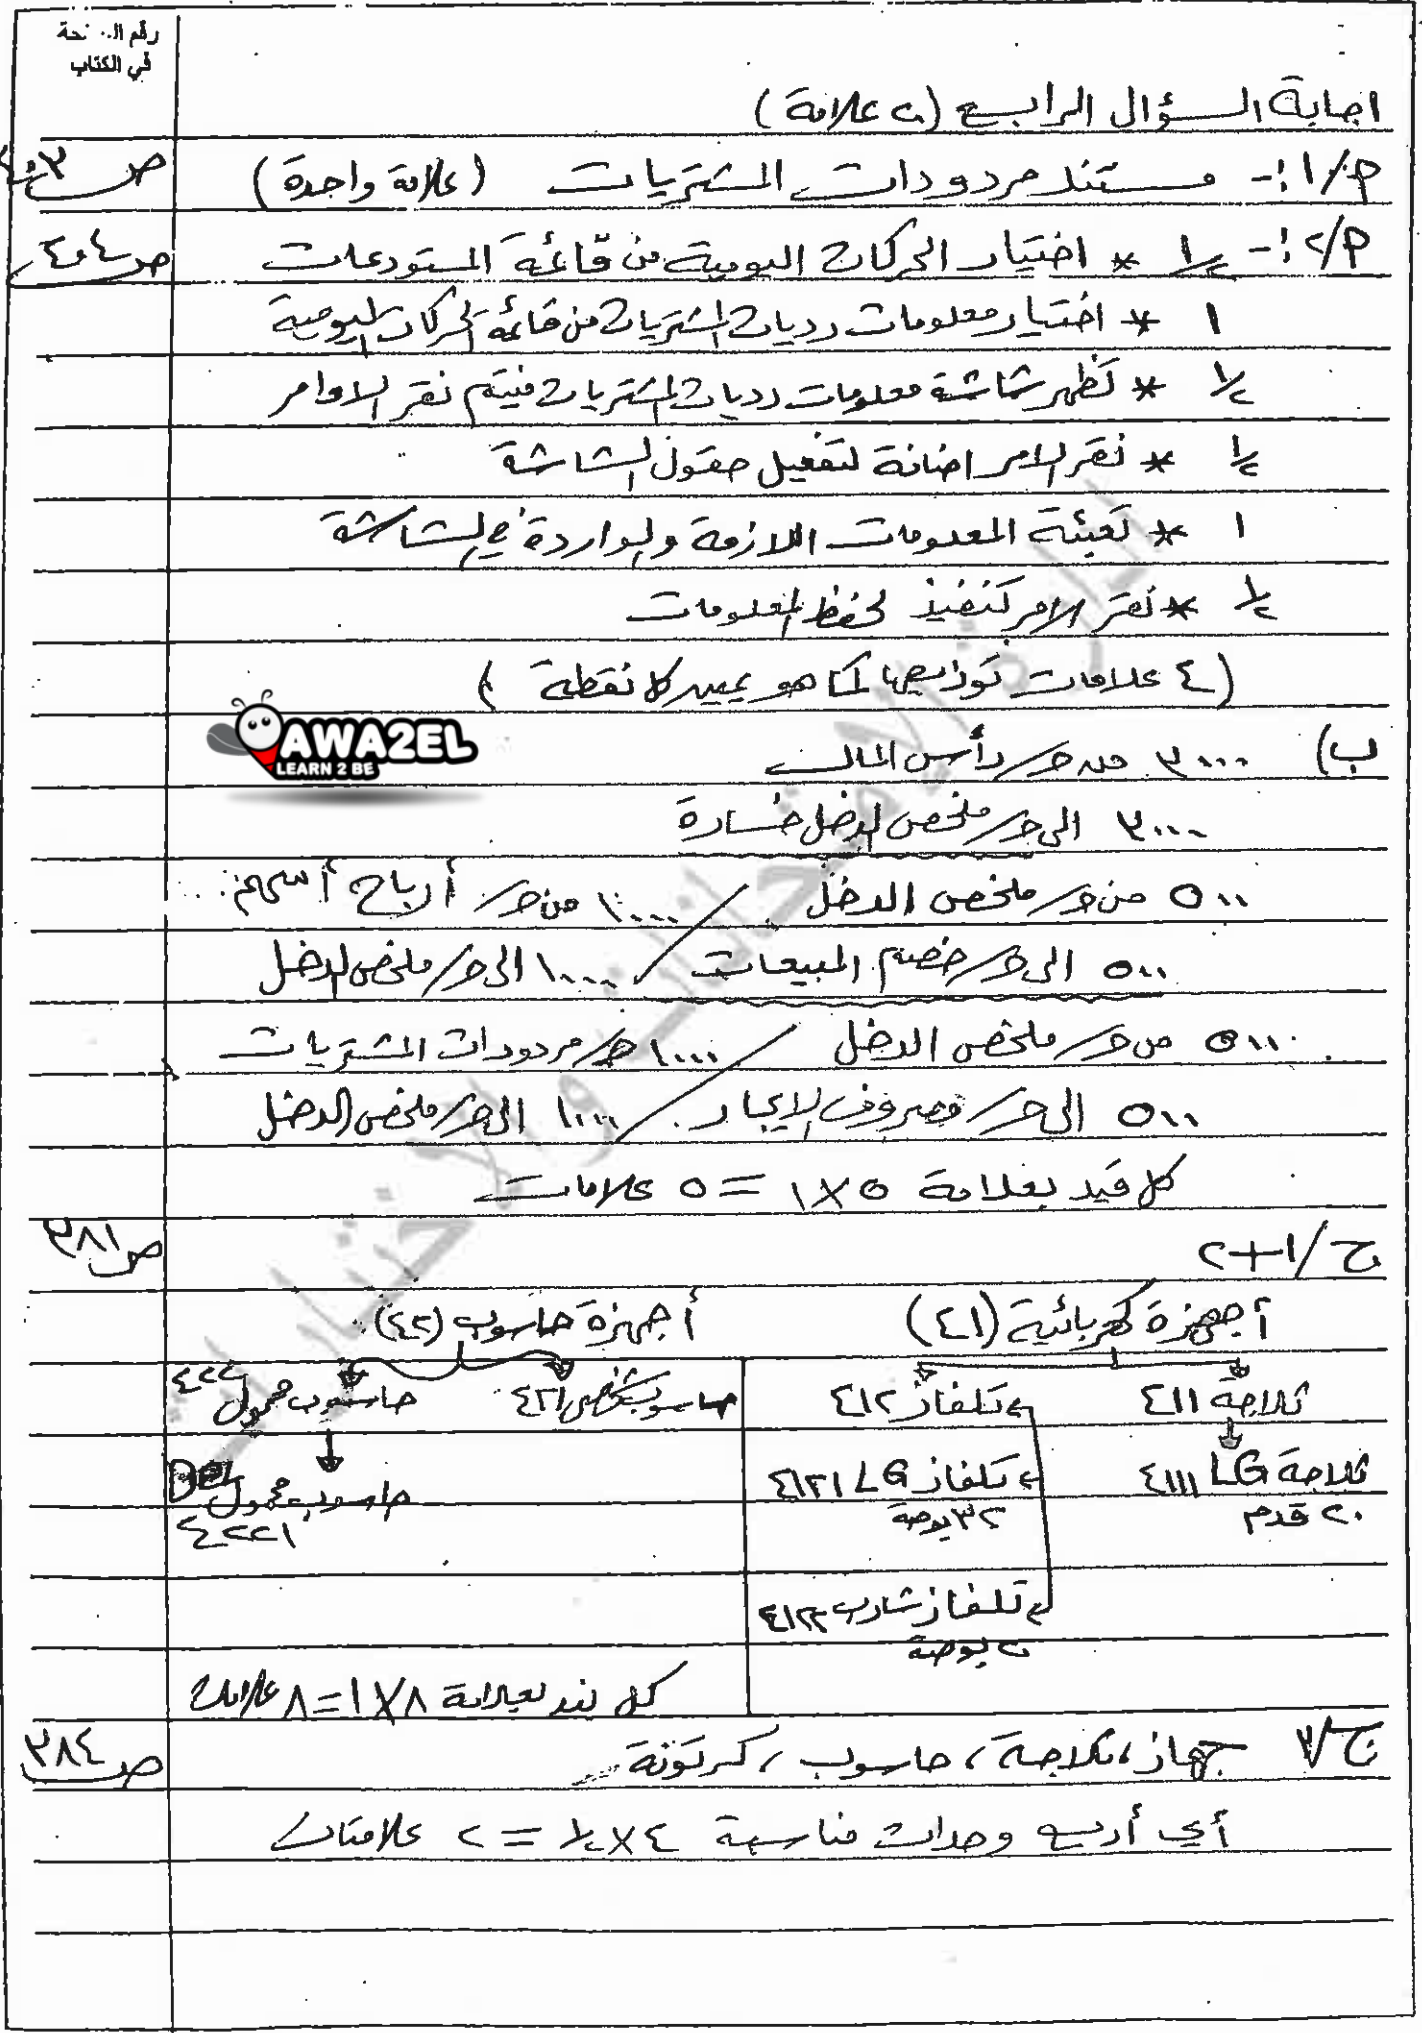 رقم الصفحة
في الكتاب
اجابة السؤال الرابع (٢٠ علامة)
٢/١:- مستند مردودات المشتريات (علامة واحدة)
٢/٢:- ١/٢ * اختيار الحركات اليومية من قائمة المستودعات
ص٤٠٤
١ * اختيار معلومات رديات المشتريات من قائمة الحركات اليومية
١/٢ * تظهر شاشة معلومات رديات المشتريات فيتم نقر الاوامر
١/٢ * نقر الامر اضافة لتفعيل حقول الشاشة
١ * تعبئة المعلومات اللازمة والواردة في الشاشة
١/٢ * نقر الامر تنفيذ لحفظ المعلومات
(٤ علامات توزيعها كما هو يمين كل نقطة)
AWA2EL
LEARN 2 BE
ب) ٣٠٠٠ من حـ/ رأس المال
٣٠٠٠ الى حـ/ ملخص الدخل خسارة
٥٠٠ من حـ/ ملخص الدخل / ١٠٠٠٠ من حـ/ أرباح أسهم
٥٠٠ الى حـ/ خصم المبيعات / ١٠٠٠٠ الى حـ/ ملخص الدخل
٥٠٠ من حـ/ ملخص الدخل / ١٠٠٠ حـ/ مردودات المشتريات
٥٠٠ الى حـ/ مصروف الايجار / ١٠٠٠ الى حـ/ ملخص الدخل
كل قيد بعلامة ٥×١ = ٥ علامات
ج/١+٢
ص٣٨١
أجهزة كهربائية (٤١) أجهزة حاسوب (٤٢)
ثلاجة ٤١١ تلفاز ٤١٢ حاسوب شخصي ٤٢١ حاسوب محمول ٤٢٢
ثلاجة LG ٤١١١ تلفاز LG ٤١٢١ حاسوب محمول Dell
٢٠ قدم ٣٢ بوصة ٤٢٢١
تلفاز شارب ٤١٢٢
٢٠ بوصة
كل بند بعلامة ٨×١=٨ علامات
ج/٣ جهاز، ثلاجة، حاسوب، كرتونة
ص٣٨٤
أي أربع وحدات مناسبة ٤×١/٢ = ٢ علامتان